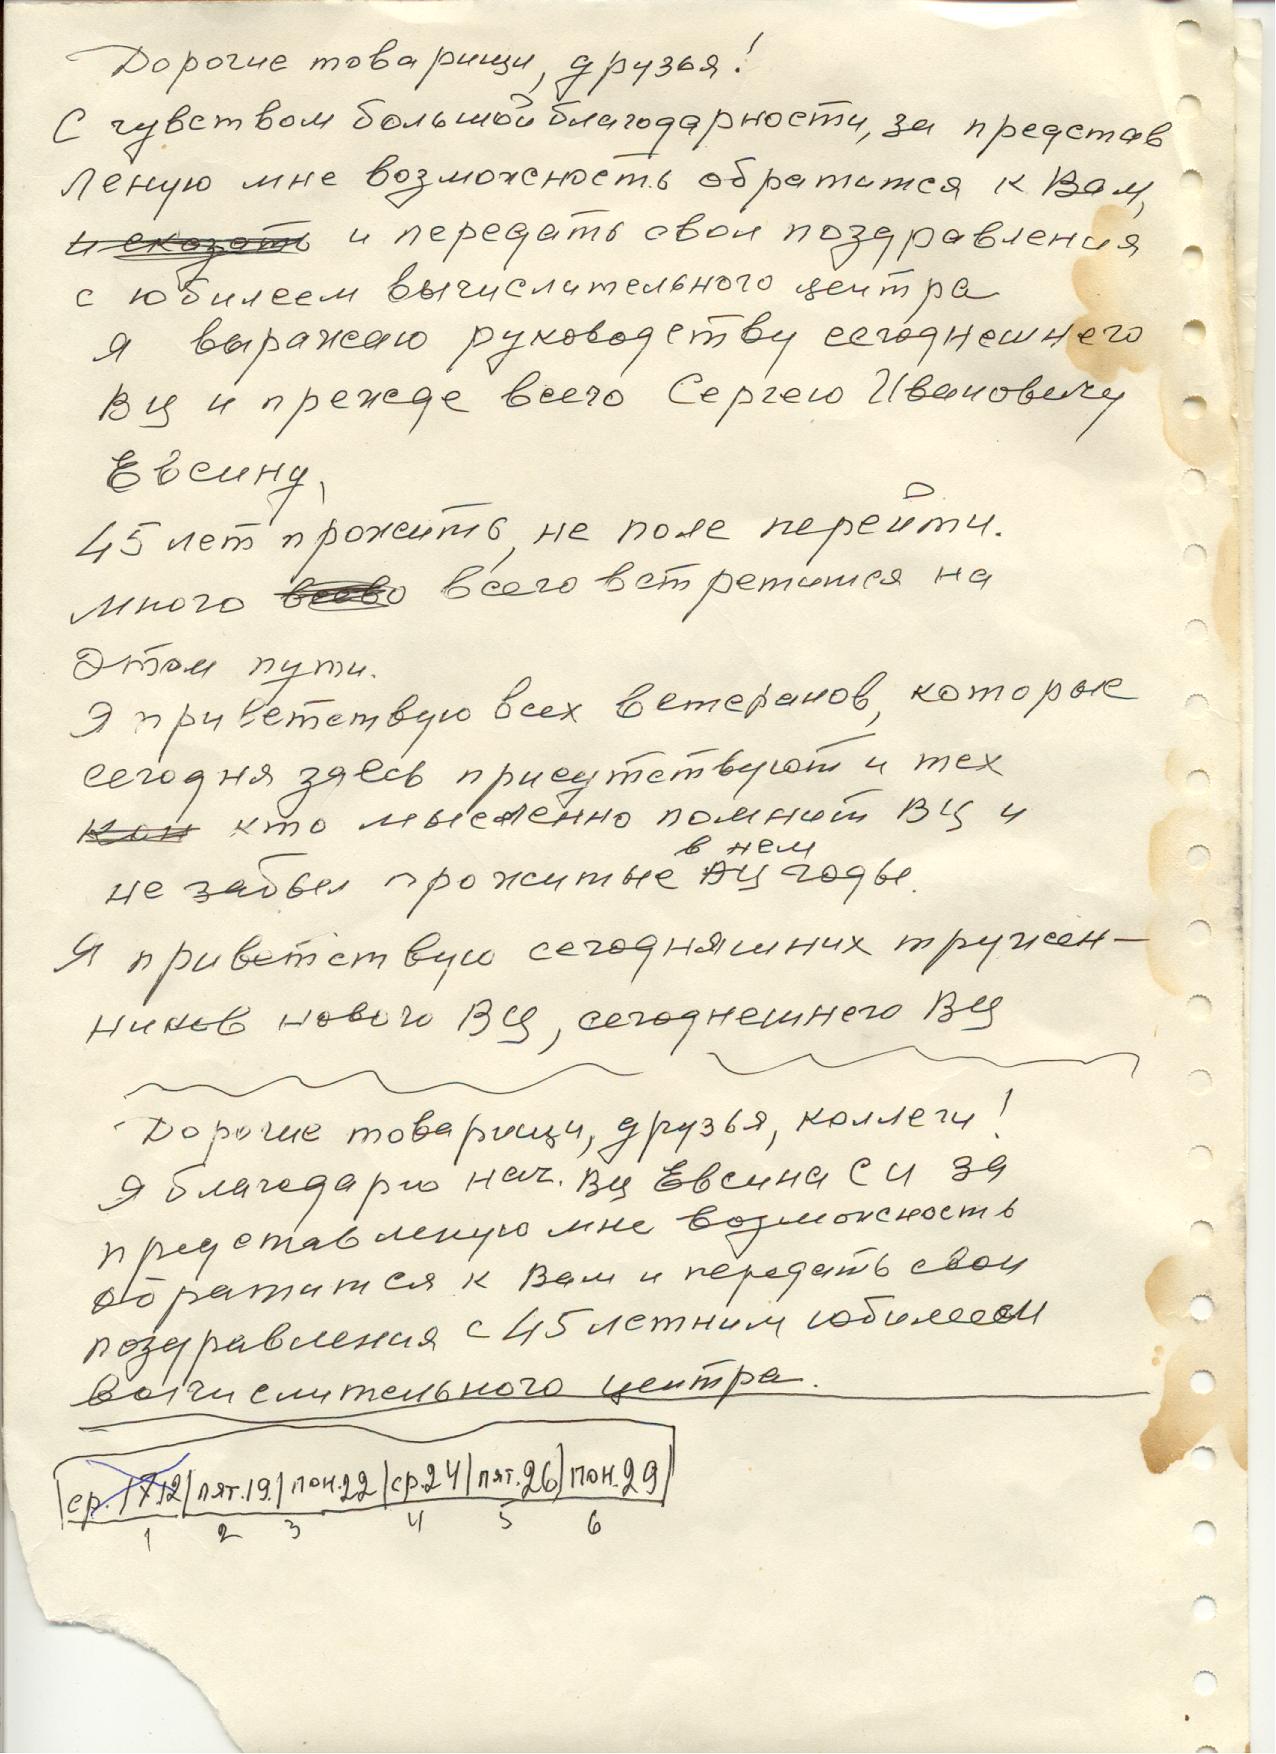 Дорогие товарищи, друзья!
С чувством большой благодарности, за представ
леную мне возможность обратится к Вам,
и сказать и передать свои поздравления
с юбилеем вычислительного центра
я выражаю руководству сегоднешнего
ВЦ и прежде всего Сергею Ивановичу
Евсину,
45 лет прожить, не поле перейти.
много всево всего встретится на
этом пути.
Я приветствую всех ветеранов, которые
сегодня здесь присутствуют и тех
кто мысленно помнит ВЦ и
в нем
не забыл прожитые ВЦ годы.
Я приветствую сегодняшних тружен-
ников нового ВЦ, сегоднешнего ВЦ
Дорогие товарищи, друзья, коллеги!
Я благодарю нач. ВЦ Евсина С И за
представленую мне возможность
обратится к Вам и передать свои
поздравления с 45 летним юбилеем
вычислительного центра.
ср. 17.12 | пят. 19. | пон. 22 | ср. 24 | пят. 26 | пон. 29
1 2 3 4 5 6